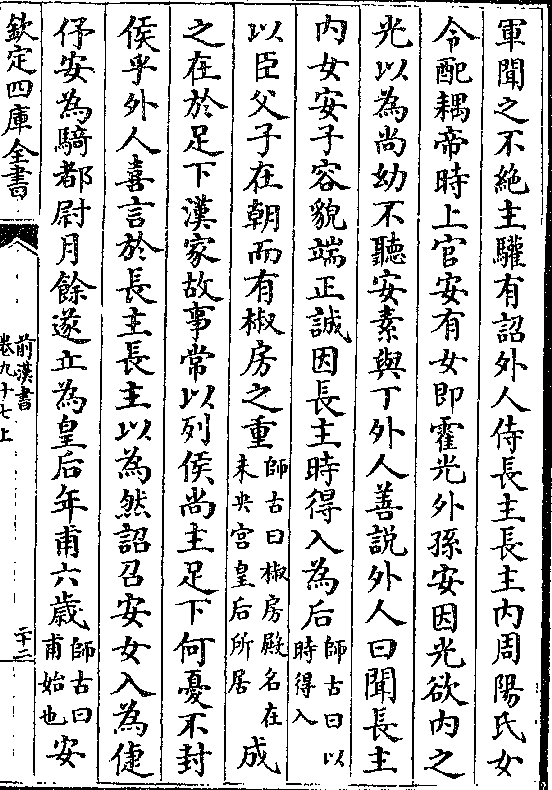 軍聞之不絶主驩有詔外人侍長主長主内周陽氏女
令配耦帝時上官安有女即霍光外孫安因光欲内之
光以為尚幼不聽安素與丁外人善説外人曰聞長主
内女安子容貌端正誠因長主時得入為后師古曰以時得入
以臣父子在朝而有椒房之重師古曰椒房殿名在未央宫皇后所居成
之在於足下漢家故事常以列侯尚主足下何憂不封
侯乎外人喜言於長主長主以為然詔召安女入為倢
伃安為騎都尉月餘遂立為皇后年甫六歳師古曰甫始也安
欽定四庫全書
前漢書
卷九十七上
二十二